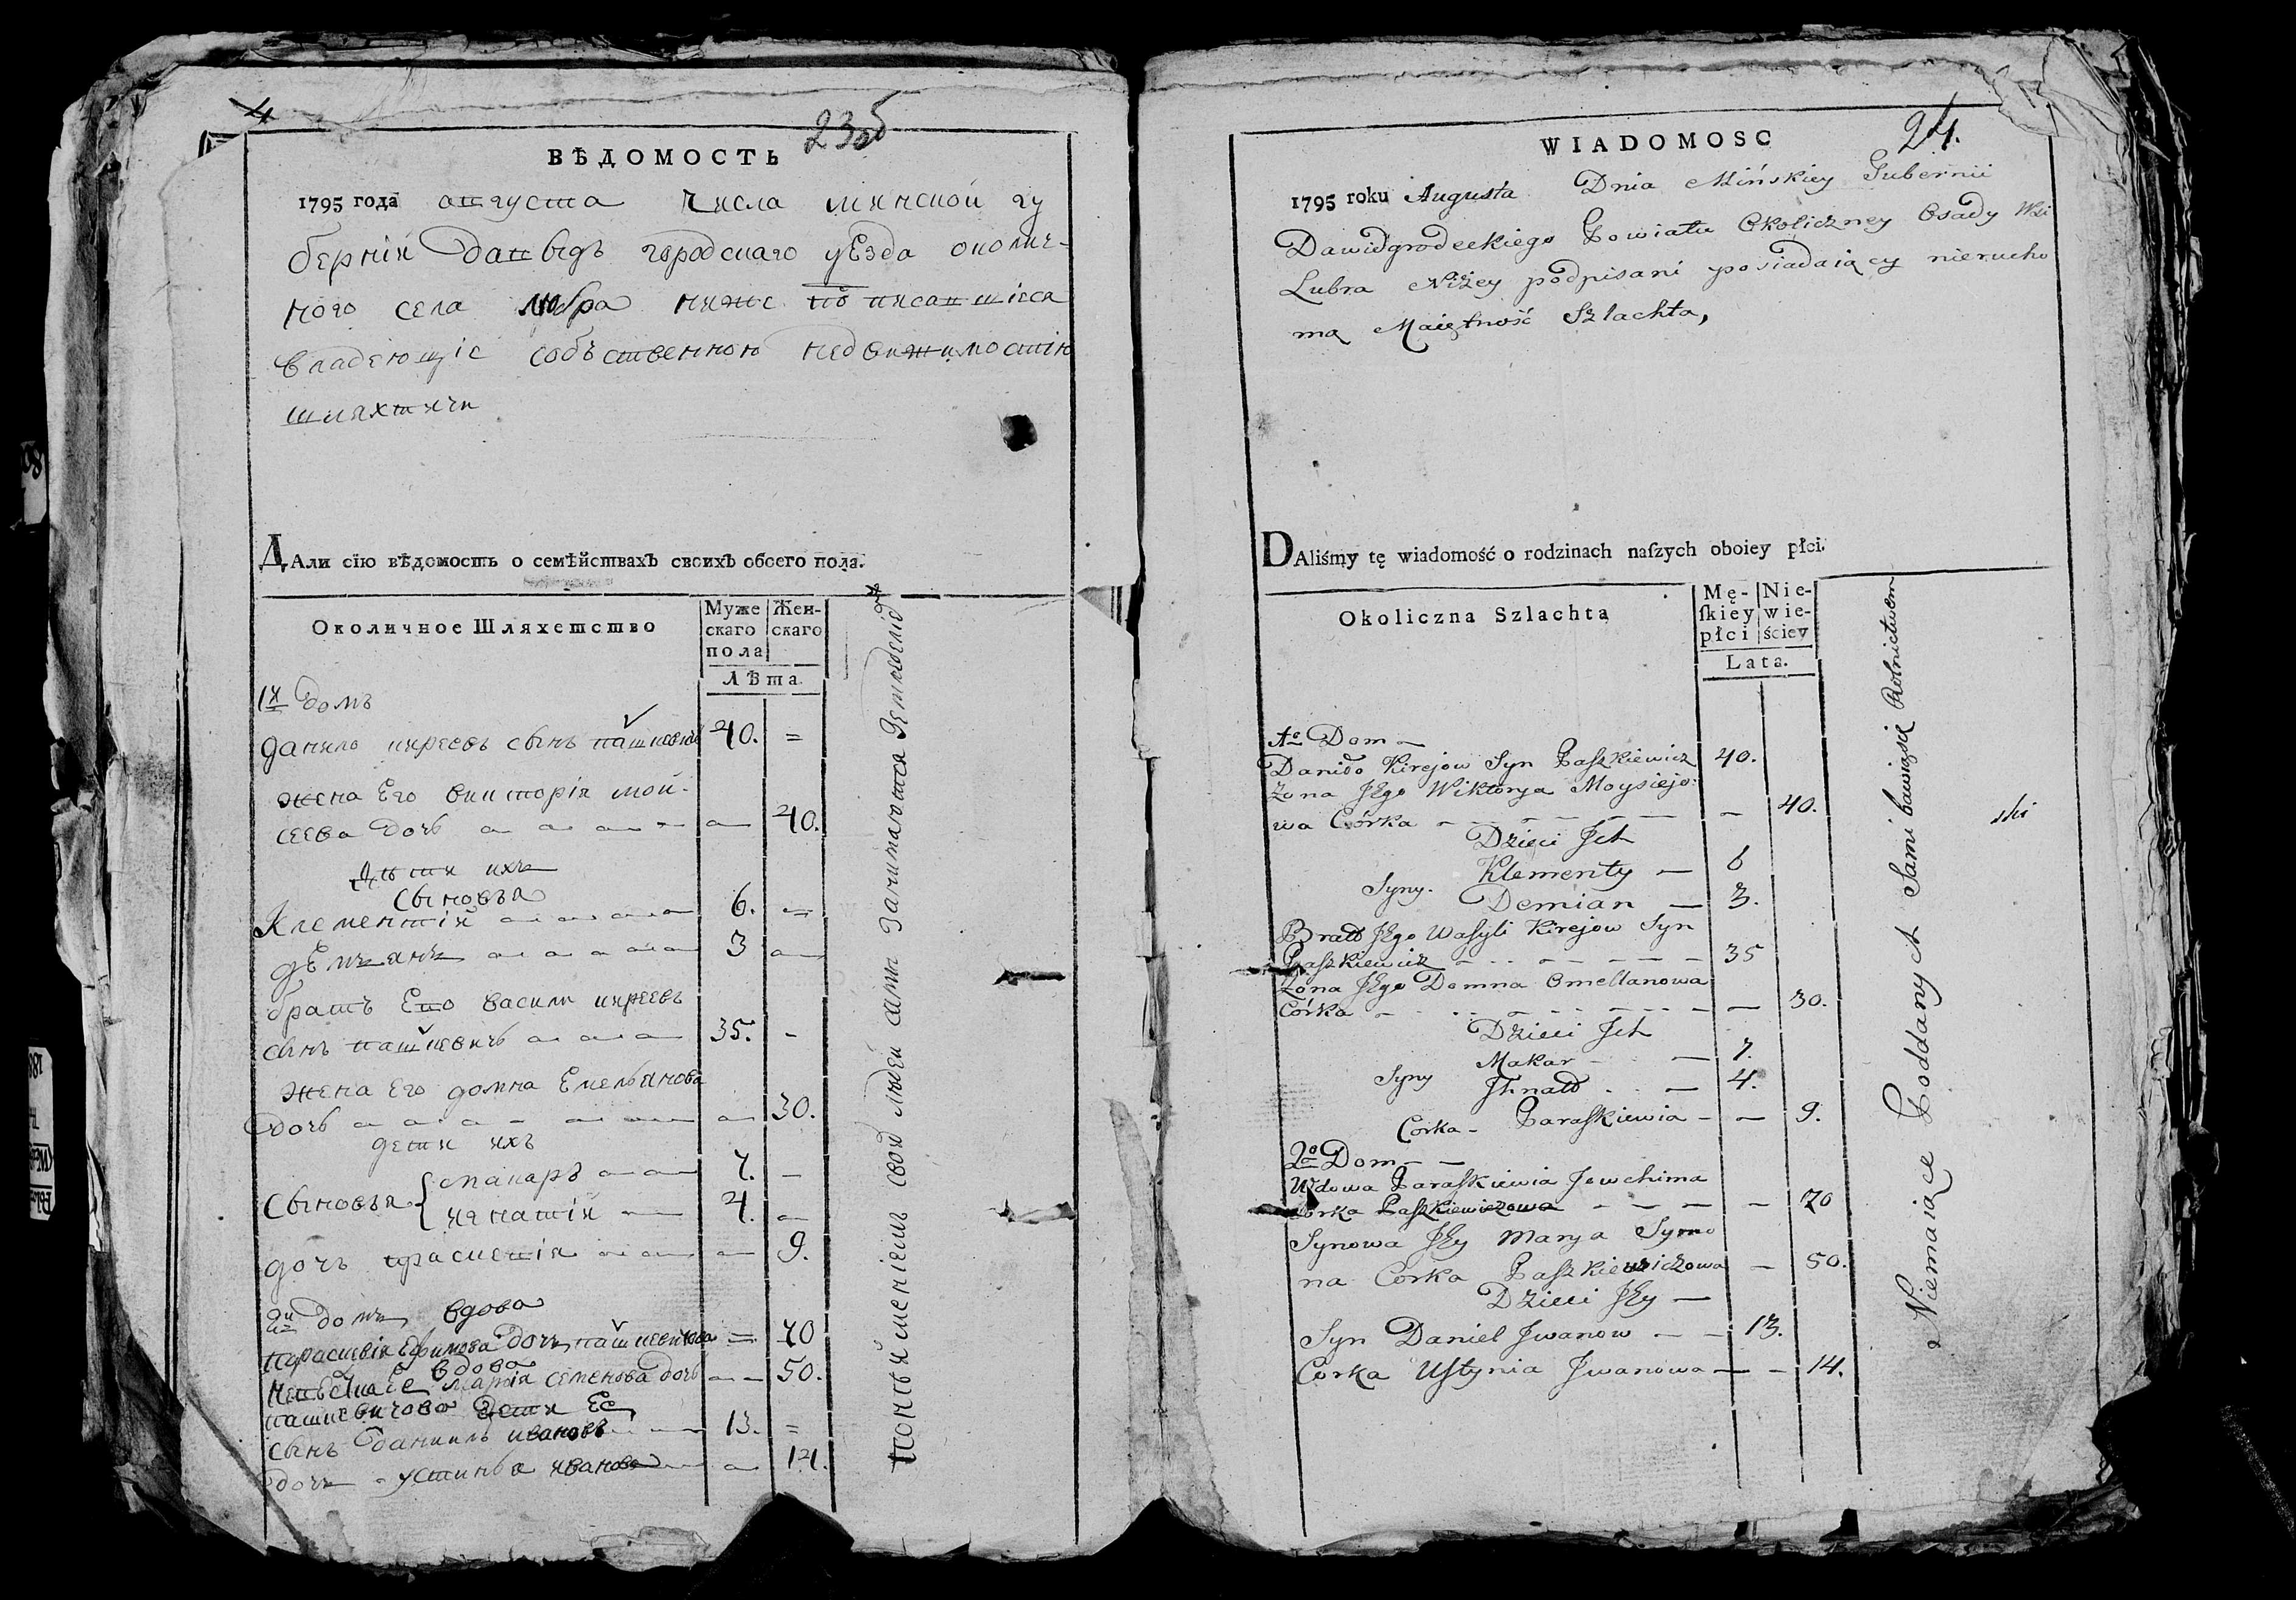 4
23об
ВѢДОМОСТЬ
1795 года августа числа минской гу
берніи давыдъ городскаго уЕзда околич-
ного села любра ниже по писавшіеся
владеющіе собственною недвижимостію
шляхтичи
ДАли сїю вѣдомость о семѣйствахЪ своихЪ обоего пола.
Околичное Шляхетство
Муже
скаго
пола
Жен-
скаго
Лѣта
1й домъ
данило киреевъ сынъ пашкевичъ 40. =
жена Его викторія мой-
сеева дочь 40.
Дѣти ихъ
сыновья
Клементій 6. =
дЕмьянъ 3
братъ Его василий киреевъ
сынъ пашкевичъ 35. -
жена Его домна Емельянова
дочь 30.
дети ихъ
сыновья { макаръ 7. -
игнатій 4.
дочь 9.
2й домъ вдова
Ефимова дочь пашкевичова = 70
вдова
марія семенова дочь 50.
пашкевичова дети Ее
сынъ даниилъ ивановъ 13. =
дочь устинья иванова 14.
людей сами занимаются
WIADOMOSC
24.
1795 roku Augusta Dnia Mińskiey Gubernii
Dawidgrodeckiego Powiatu Okoliczney Osady Wsi
Lubra Niżey podpisani posiadaiący nierucho
mą Maiętność Szlachta,
DAliśmy tę wiadomość o rodzinach naſzych oboiey płci.
Okoliczna Szlachta
Mę-
ſkiey
płci
Nie-
wie-
ściey
Lata.
1o Dom
Daniło Kirejow Syn Paſzkiewicz 40.
Zona JEgo Wiktorya Moysiejo
wa Córka 40.
Dzieci Jch
Syny. Klementy 6
Demian 3.
Bratt JEgo Waſyli Kirejow Syn
Paſzkiewicz 35
Zona JEgo Domna Omellanowa
Córka 30.
Dzieci Jch
Syny Makar 7.
Jhnatt 4.
Corka - Paraſkiewia 9.
2o Dom
Wdowa Paraſkiewia Jewchima
Corka Paſzkiewiczowa 70
Synowa JEy Marya Symo
na Corka Paſzkiewiczowa 50.
Dzieci JEy
Syn Daniel Jwanow 13.
Corka Uſtynia Jwanowa 14.
Niemaiące Poddanych Sami bawią się Rolnictwem